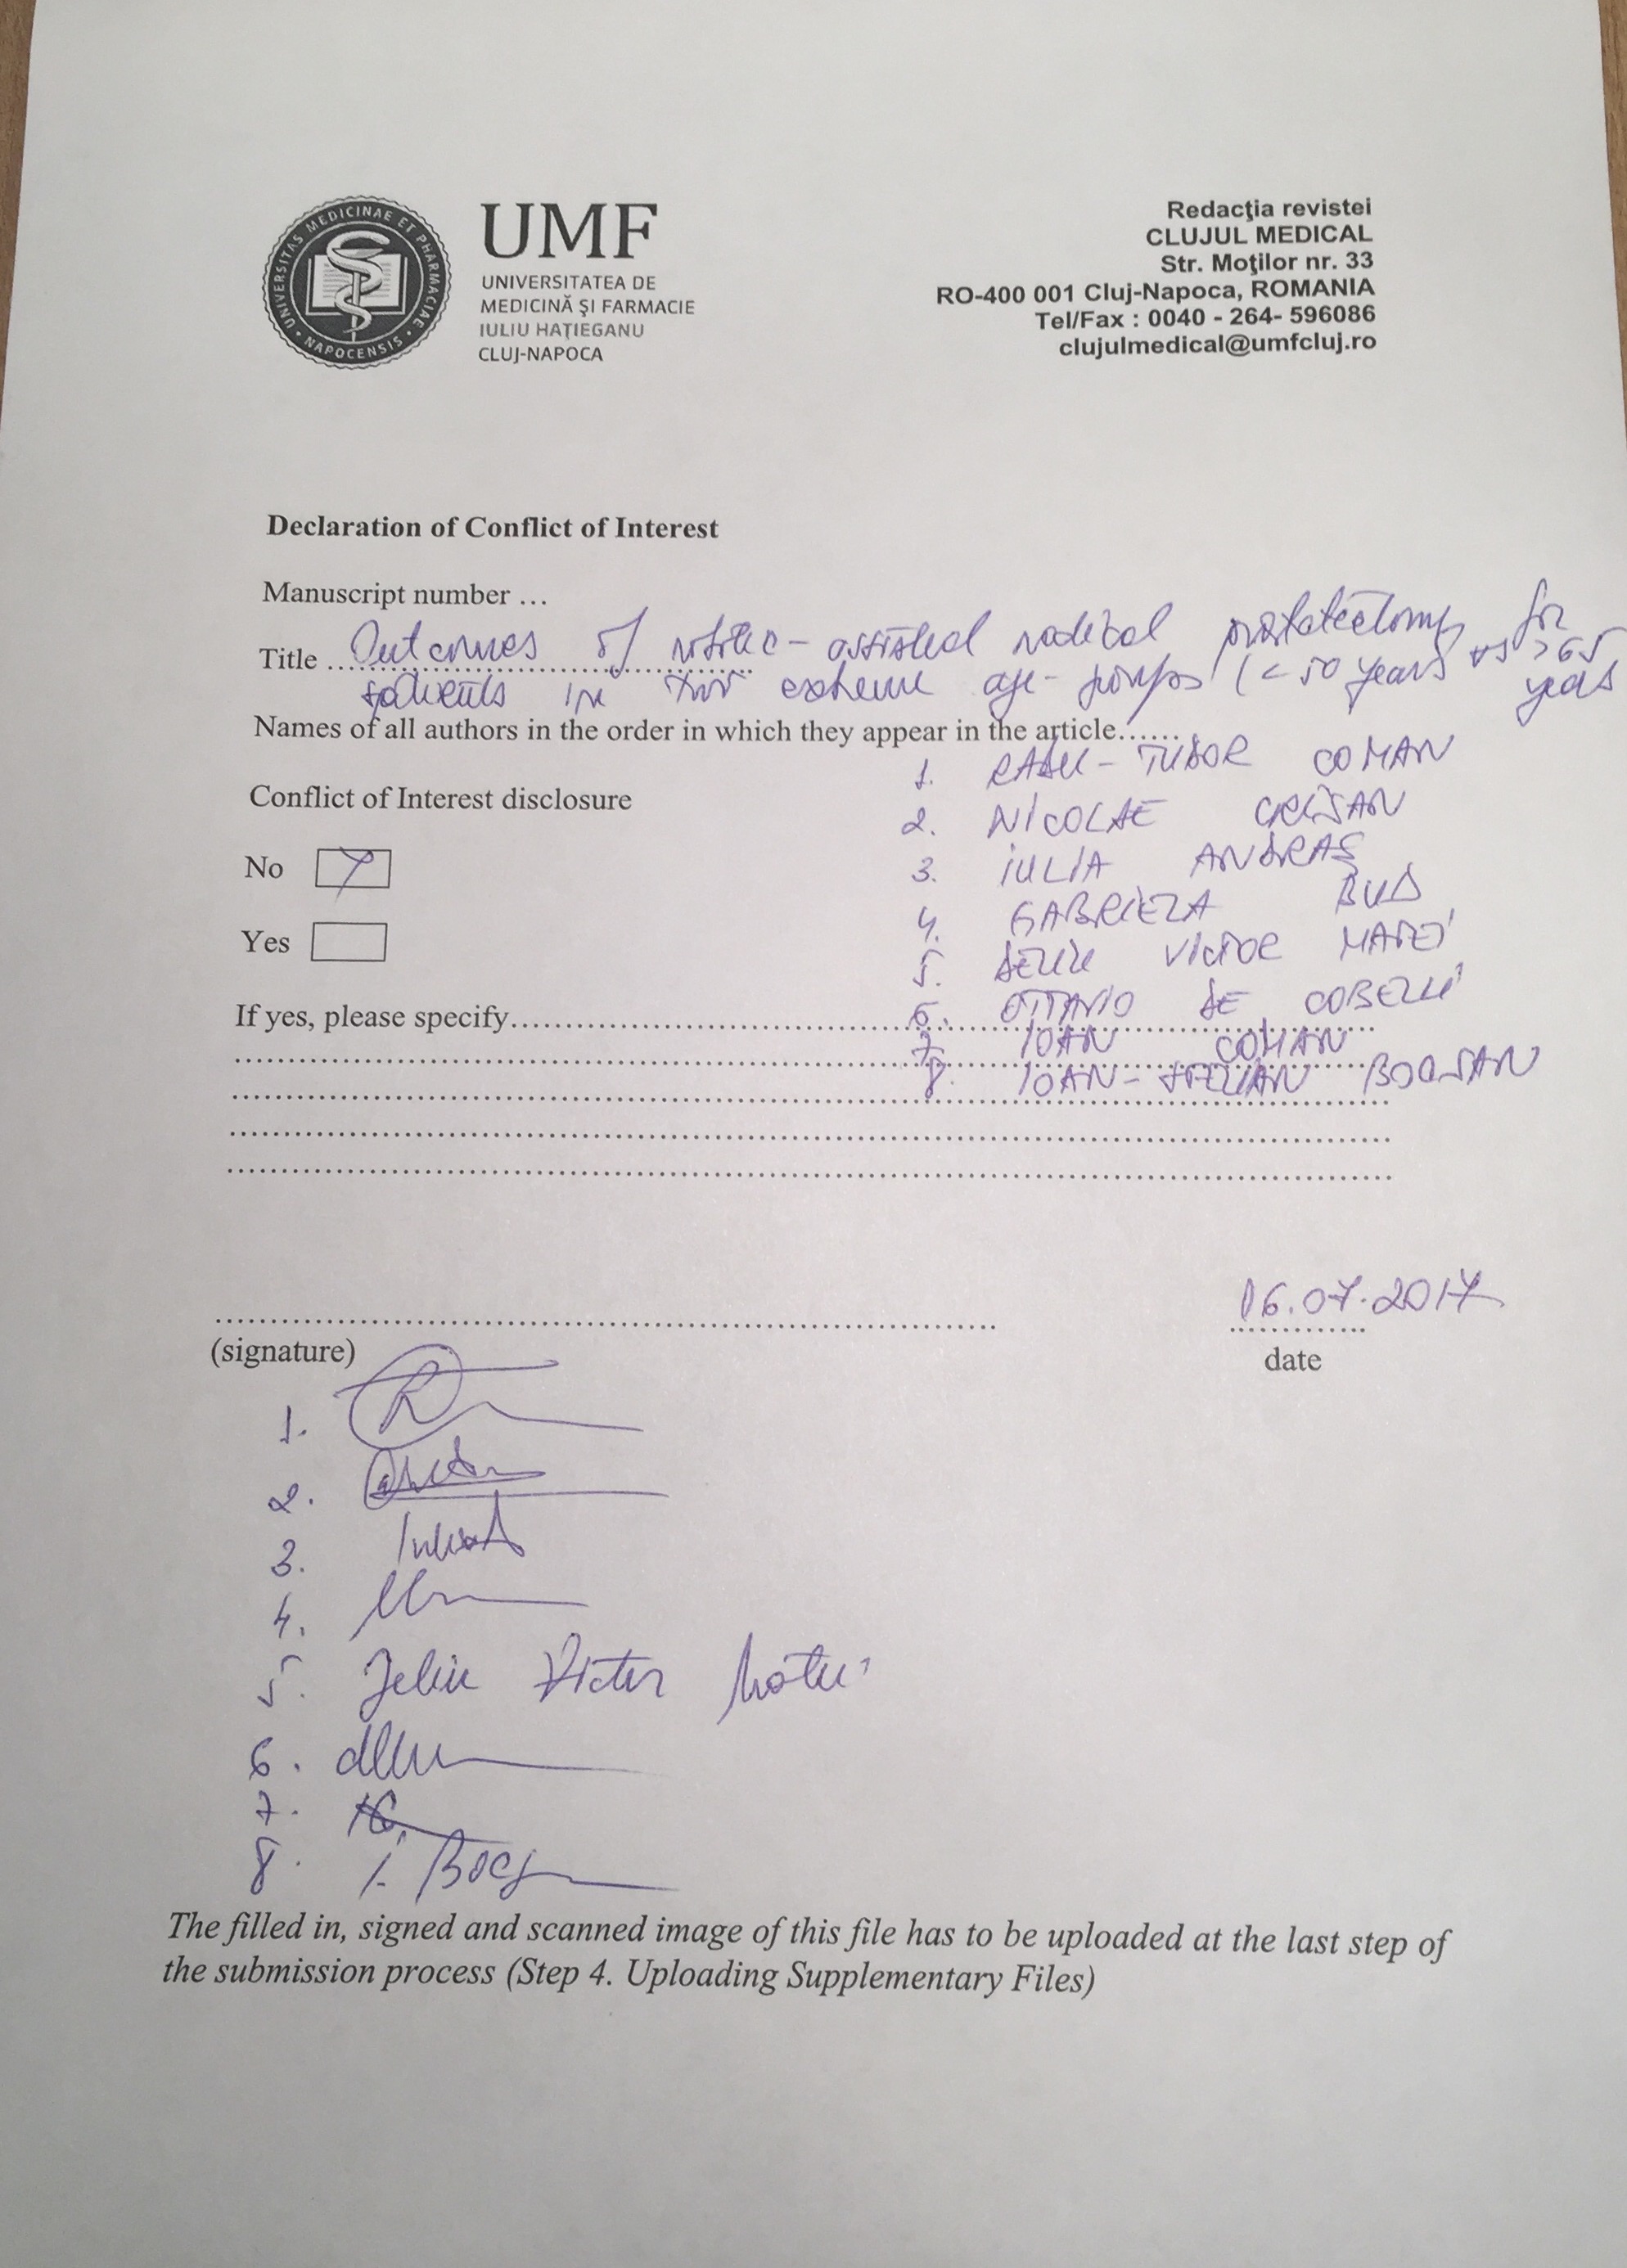 UNIVERSITAS MEDICINAE ET PHARMACIAE
NAPOCENSIS
UMF
UNIVERSITATEA DE
MEDICINĂ ŞI FARMACIE
IULIU HAŢIEGANU
CLUJ-NAPOCA
Redacţia revistei
CLUJUL MEDICAL
Str. Moţilor nr. 33
RO-400 001 Cluj-Napoca, ROMANIA
Tel/Fax : 0040 - 264- 596086
clujulmedical@umfcluj.ro
Declaration of Conflict of Interest
Manuscript number ...
Title ... Outcomes of robotic-assisted radical prostatectomy for
patients in two extreme age-groups (<50 years vs >65
years
Names of all authors in the order in which they appear in the article......
1. RADU-TUDOR COMAN
Conflict of Interest disclosure
2. NICOLAE CRIŞAN
No
3. IULIA ANDRAŞ
4. GABRIELA BUD
Yes
5. DELIU VICTOR MATEI
If yes, please specify
6. OTTAVIO DE COBELLI
7. IOAN COMAN
8. IOAN-STELIAN BOCŞAN
16.07.2017
(signature)
date
1.
2.
3.
4.
5. Deliu Victor Matei
6.
7.
8. I. Bocş
The filled in, signed and scanned image of this file has to be uploaded at the last step of
the submission process (Step 4. Uploading Supplementary Files)